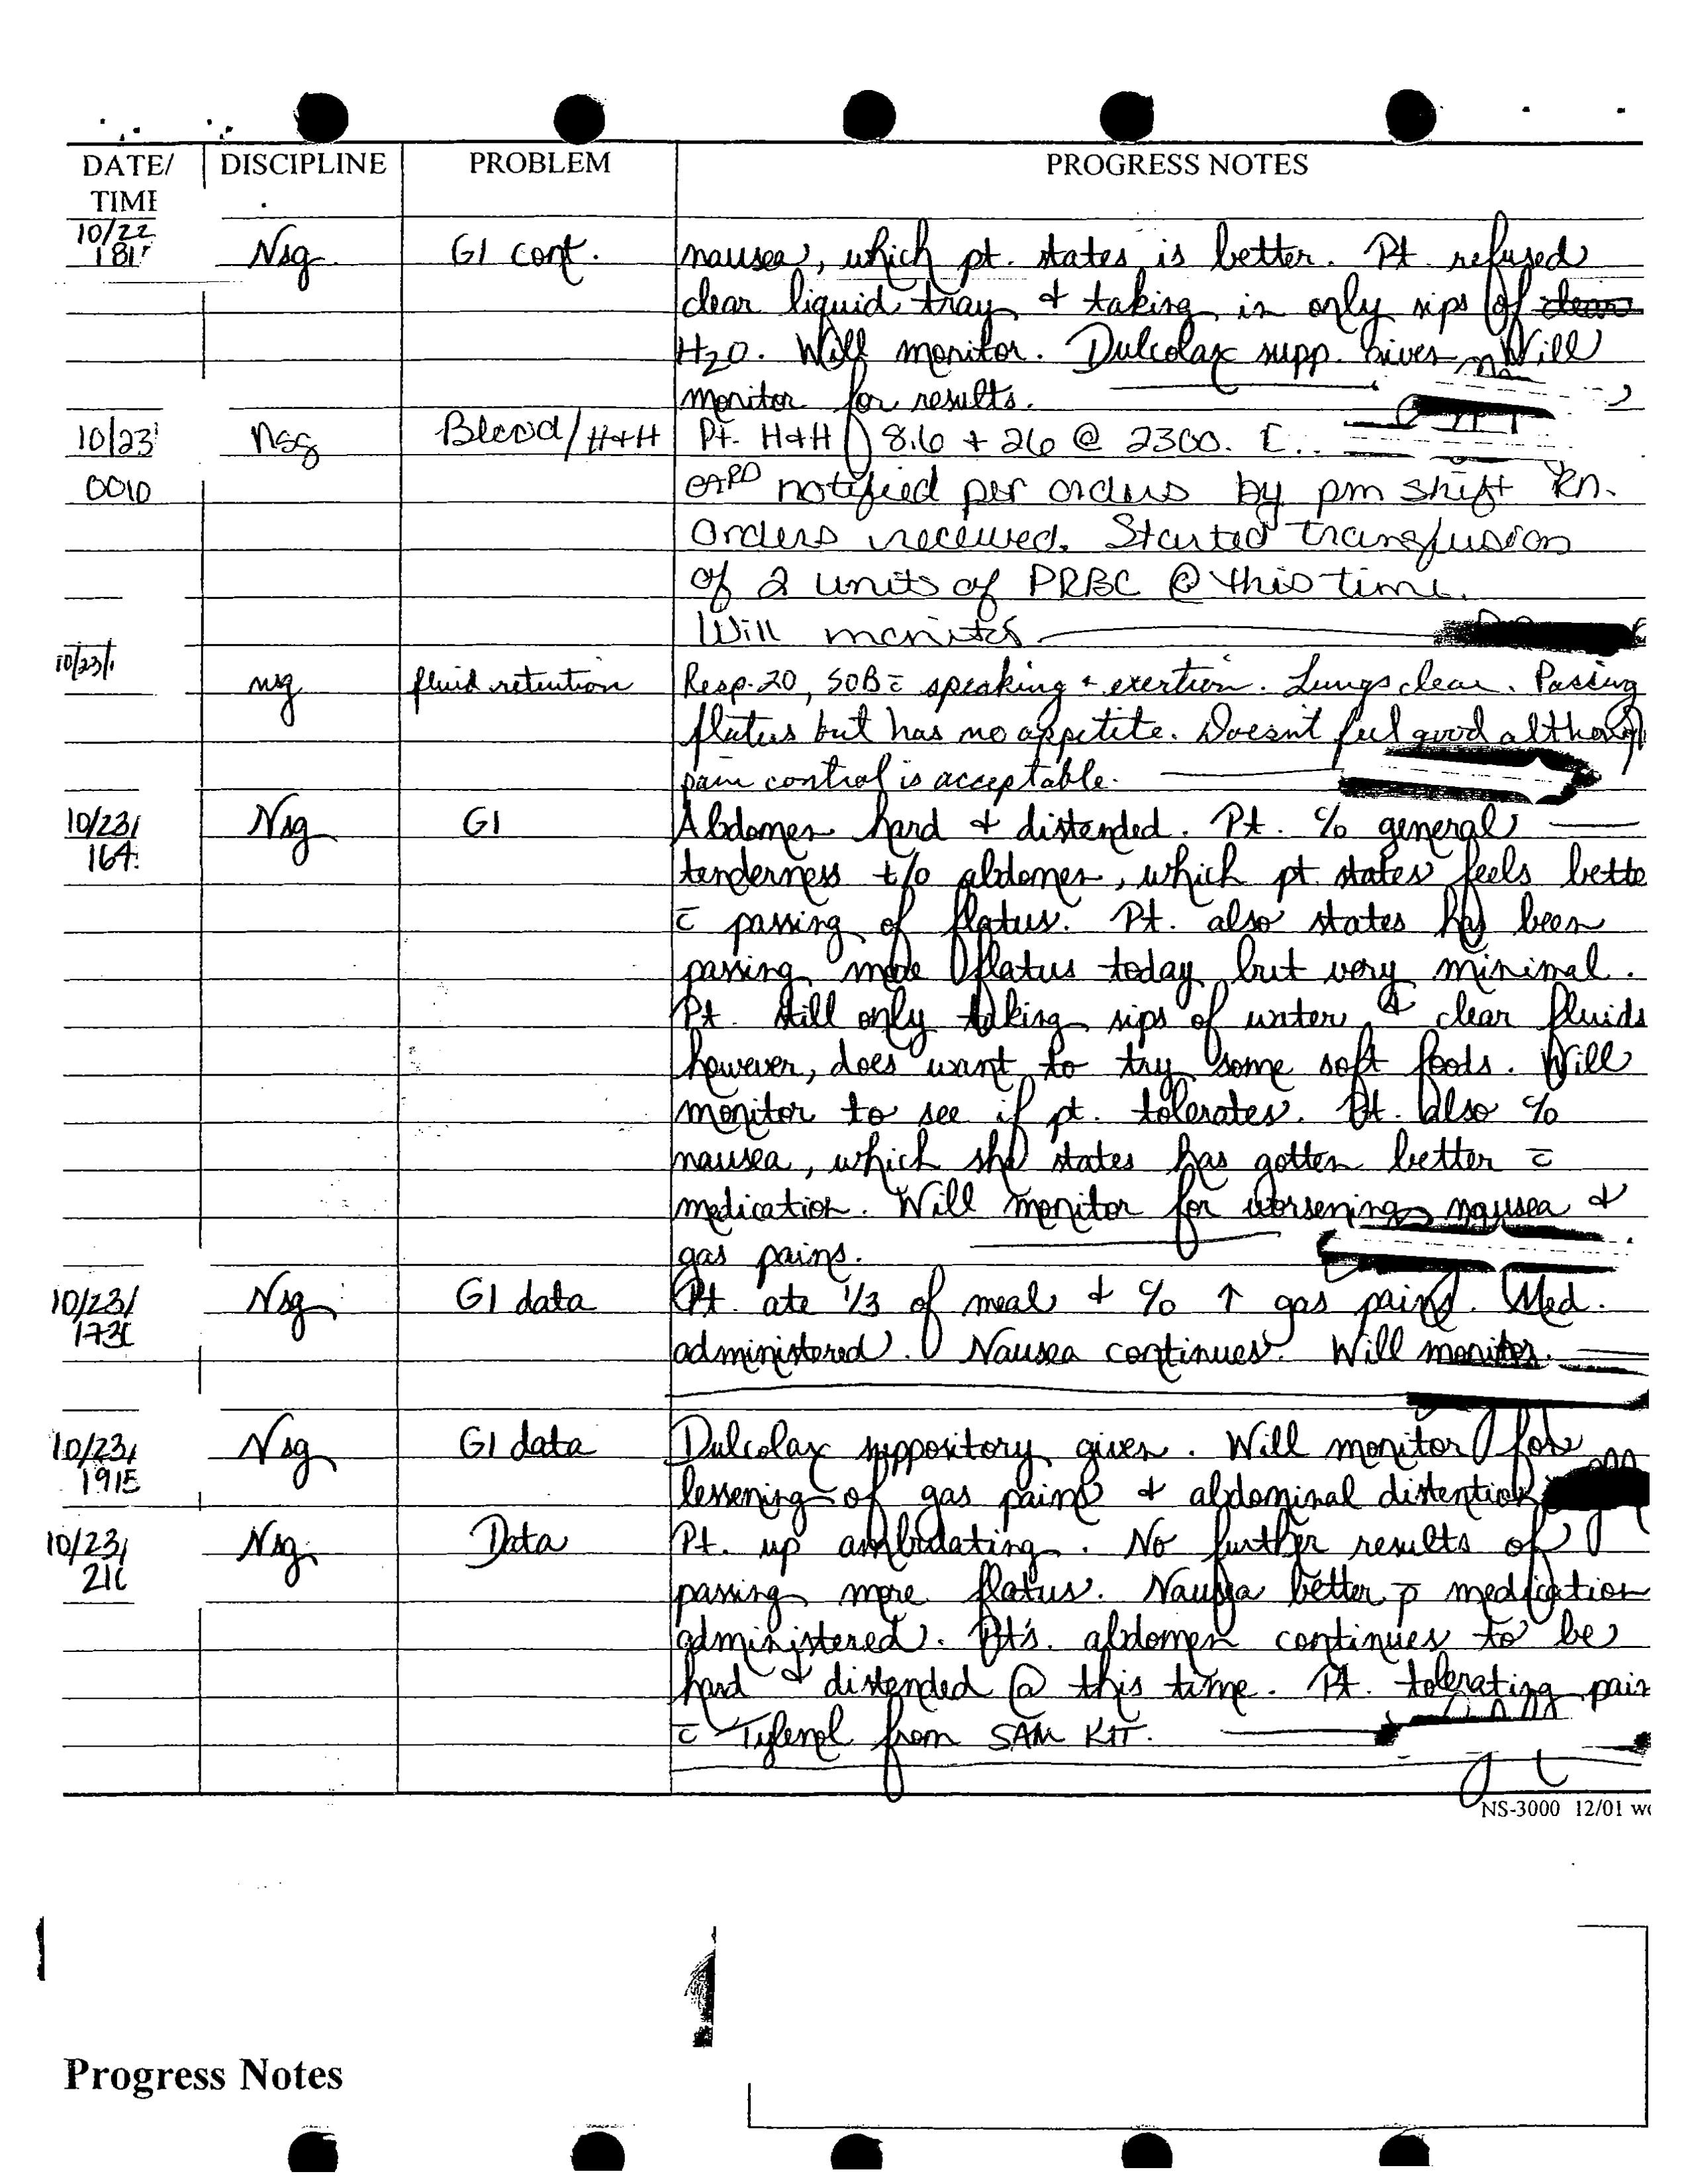 DATE/ DISCIPLINE PROBLEM PROGRESS NOTES
TIME
10/22 Nsg GI cont. nausea, which pt. states is better. Pt. refused
181
clear liquid tray & taking in only sips of clear
H2O. Will monitor. Dulcolax supp. given. Will
monitor for results.
10/23 nsg Blood/H+H Pt. H&H 8.6 + 26 @ 2300.
0010 notified per orders by pm shift RN.
Orders received. Started transfusion
of 2 units of PRBC @ this time.
Will monitor
10/23/
nsg fluid retention Resp. 20, SOB c̄ speaking + exertion. Lungs clear. Passing
flatus but has no appetite. Doesn't feel good although
pain control is acceptable.
10/23/ Nsg GI Abdomen hard & distended. Pt. c/o general
164
tenderness t/o abdomen, which pt states feels bette
c̄ passing of flatus. Pt. also states has been
passing more flatus today but very minimal.
Pt. still only taking sips of water & clear fluids
however, does want to try some soft foods. Will
monitor to see if pt. tolerates. Pt. also c/o
nausea, which she states has gotten better c̄
medication. Will monitor for worsening nausea &
gas pains.
10/23/ Nsg GI data Pt. ate 1/3 of meal & c/o ↑ gas pains. Med.
173
administered. Nausea continues. Will monitor.
10/23/ Nsg GI data Dulcolax suppository given. Will monitor for
1915 lessening of gas pains & abdominal distention
10/23/ Nsg. Data Pt. up ambulating. No further results of
21
passing more flatus. Nausea better p̄ medication
administered. Pt's. abdomen continues to be
hard & distended @ this time. Pt. tolerating pain
c̄ Tylenol from SAM KIT.
NS-3000 12/01
Progress Notes